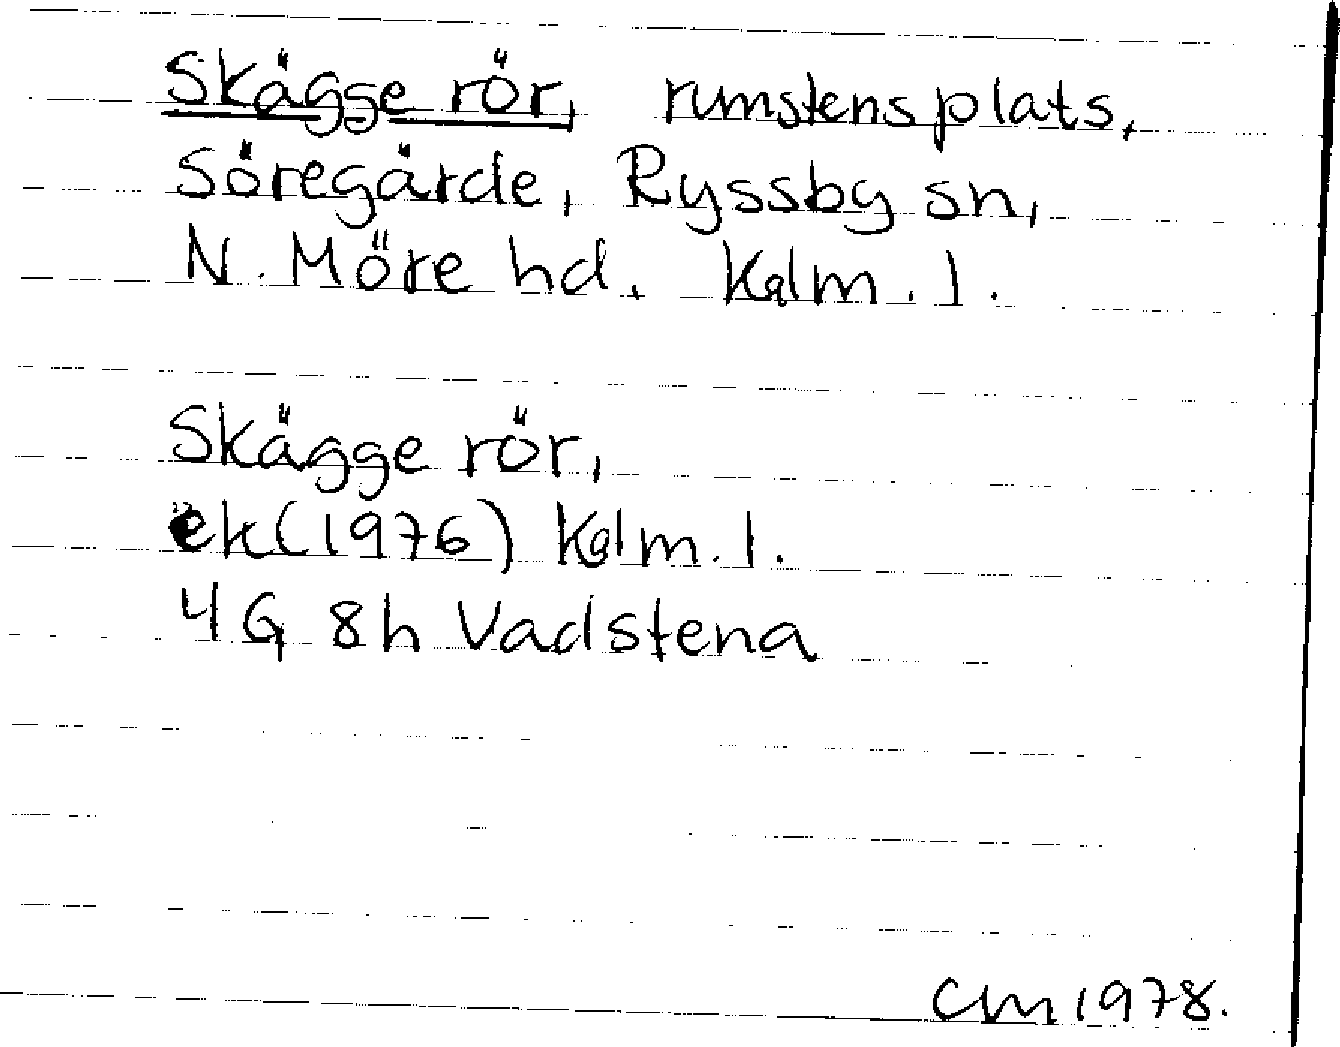 Skägge rör, rumstensplats,
Söregärde, Ryssby sn,
N. Möre hd. Kalm. l.
Skägge rör,
ek (1976) Kalm. l.
4G 8h Vadstena
CM 1978.